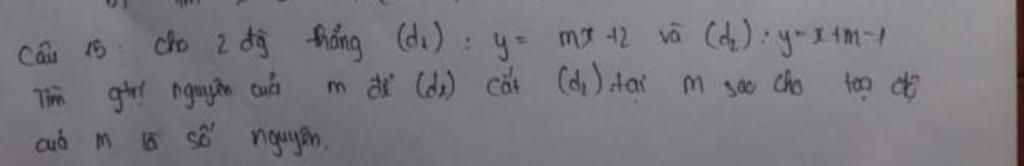 Câu 15: cho 2 đg thẳng (d₁) : y = mx +2 và (d₂) : y = x + m - 1
Tìm gtrị nguyên của m để (d₁) cắt (d₂) tại M sao cho toạ độ
của M là số nguyên.